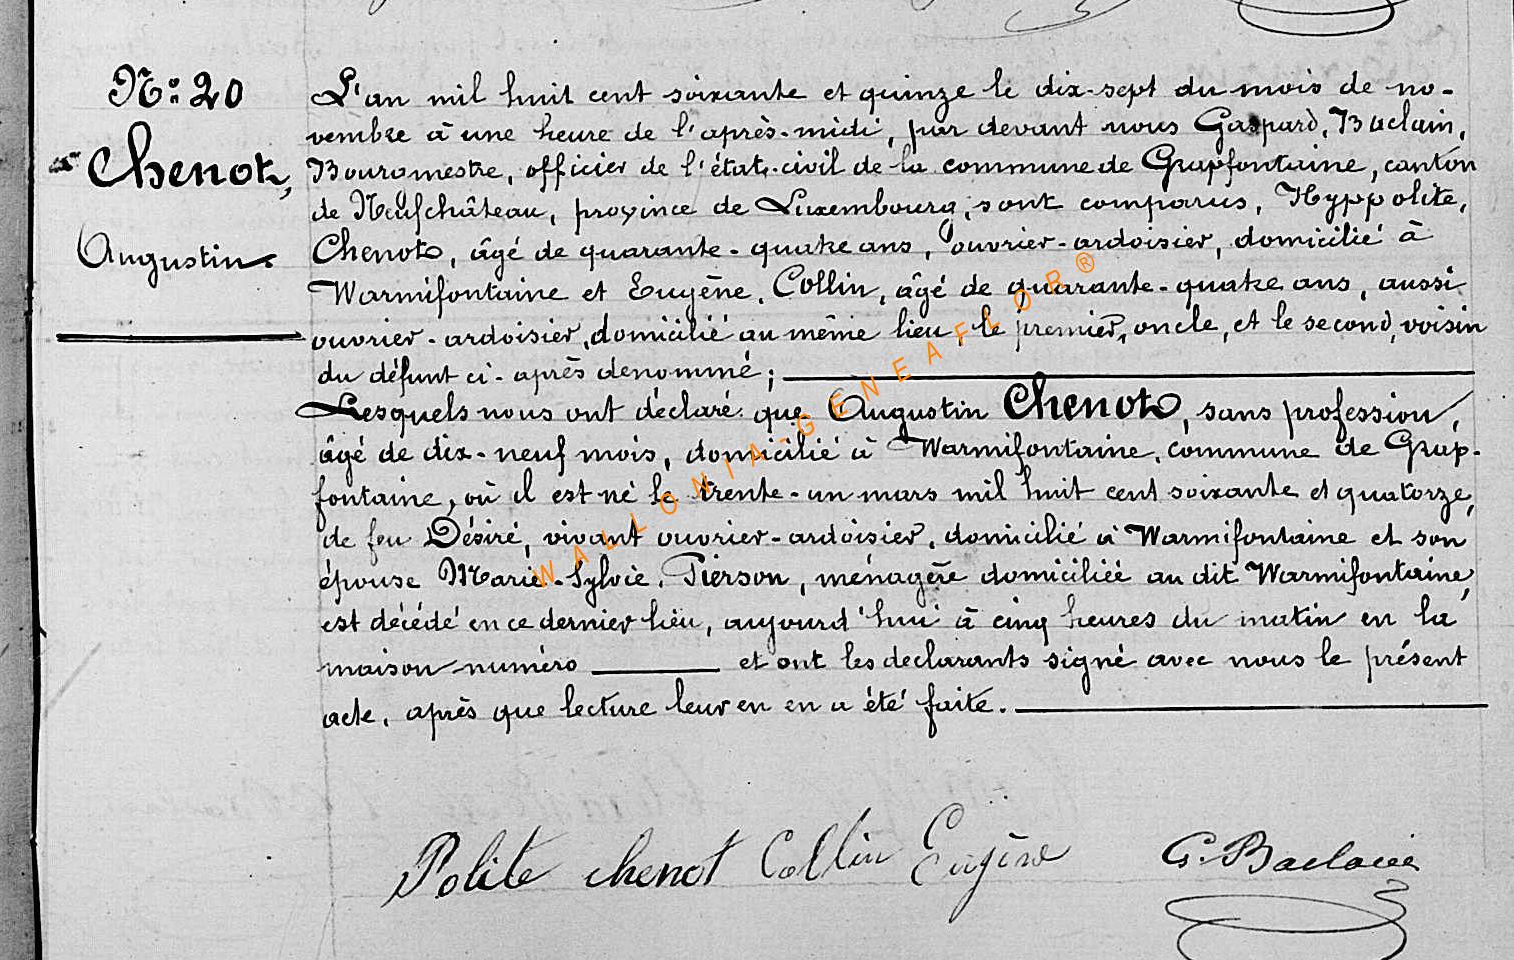 N: 20
Chenot,
Augustin.
L'an mil huit cent soixante et quinze le dix-sept du mois de no-
vembre à une heure de l'après-midi, par devant nous Gaspard, Baclain,
Bourgmestre, officier de l'état-civil de la commune de Grapfontaine, canton
de Neufchâteau, province de Luxembourg, sont comparus, Hyppolite,
Chenot, âgé de quarante-quatre ans, ouvrier-ardoisier, domicilié à
Warmifontaine et Eugène, Collin, âgé de quarante-quatre ans, aussi
ouvrier-ardoisier, domicilié au même lieu, le premier, oncle, et le second, voisin
du défunt ci-après denommé;
Lesquels nous ont déclaré que Augustin Chenot, sans profession,
âgé de dix-neuf mois, domicilié à Warmifontaine, commune de Grap-
fontaine, où il est né le trente-un mars mil huit cent soixante et quatorze,
de feu Désiré, vivant ouvrier-ardoisier, domicilié à Warmifontaine et son
épouse Marie-Sylvie, Pierson, ménagère domiciliée au dit Warmifontaine,
est décédé en ce dernier lieu, aujourd'hui à cinq heures du matin en la
maison numéro et ont les declarants signé avec nous le présent
acte, après que lecture leur en en a été faite.
Polite chenot Collin Eugène G. Baclain
WALLONIA-GENEAFLOR®